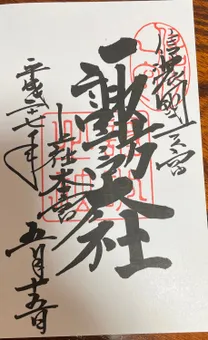 信濃國一之宮
諏訪大社
上社本宮
平成二十七年
五月十五日